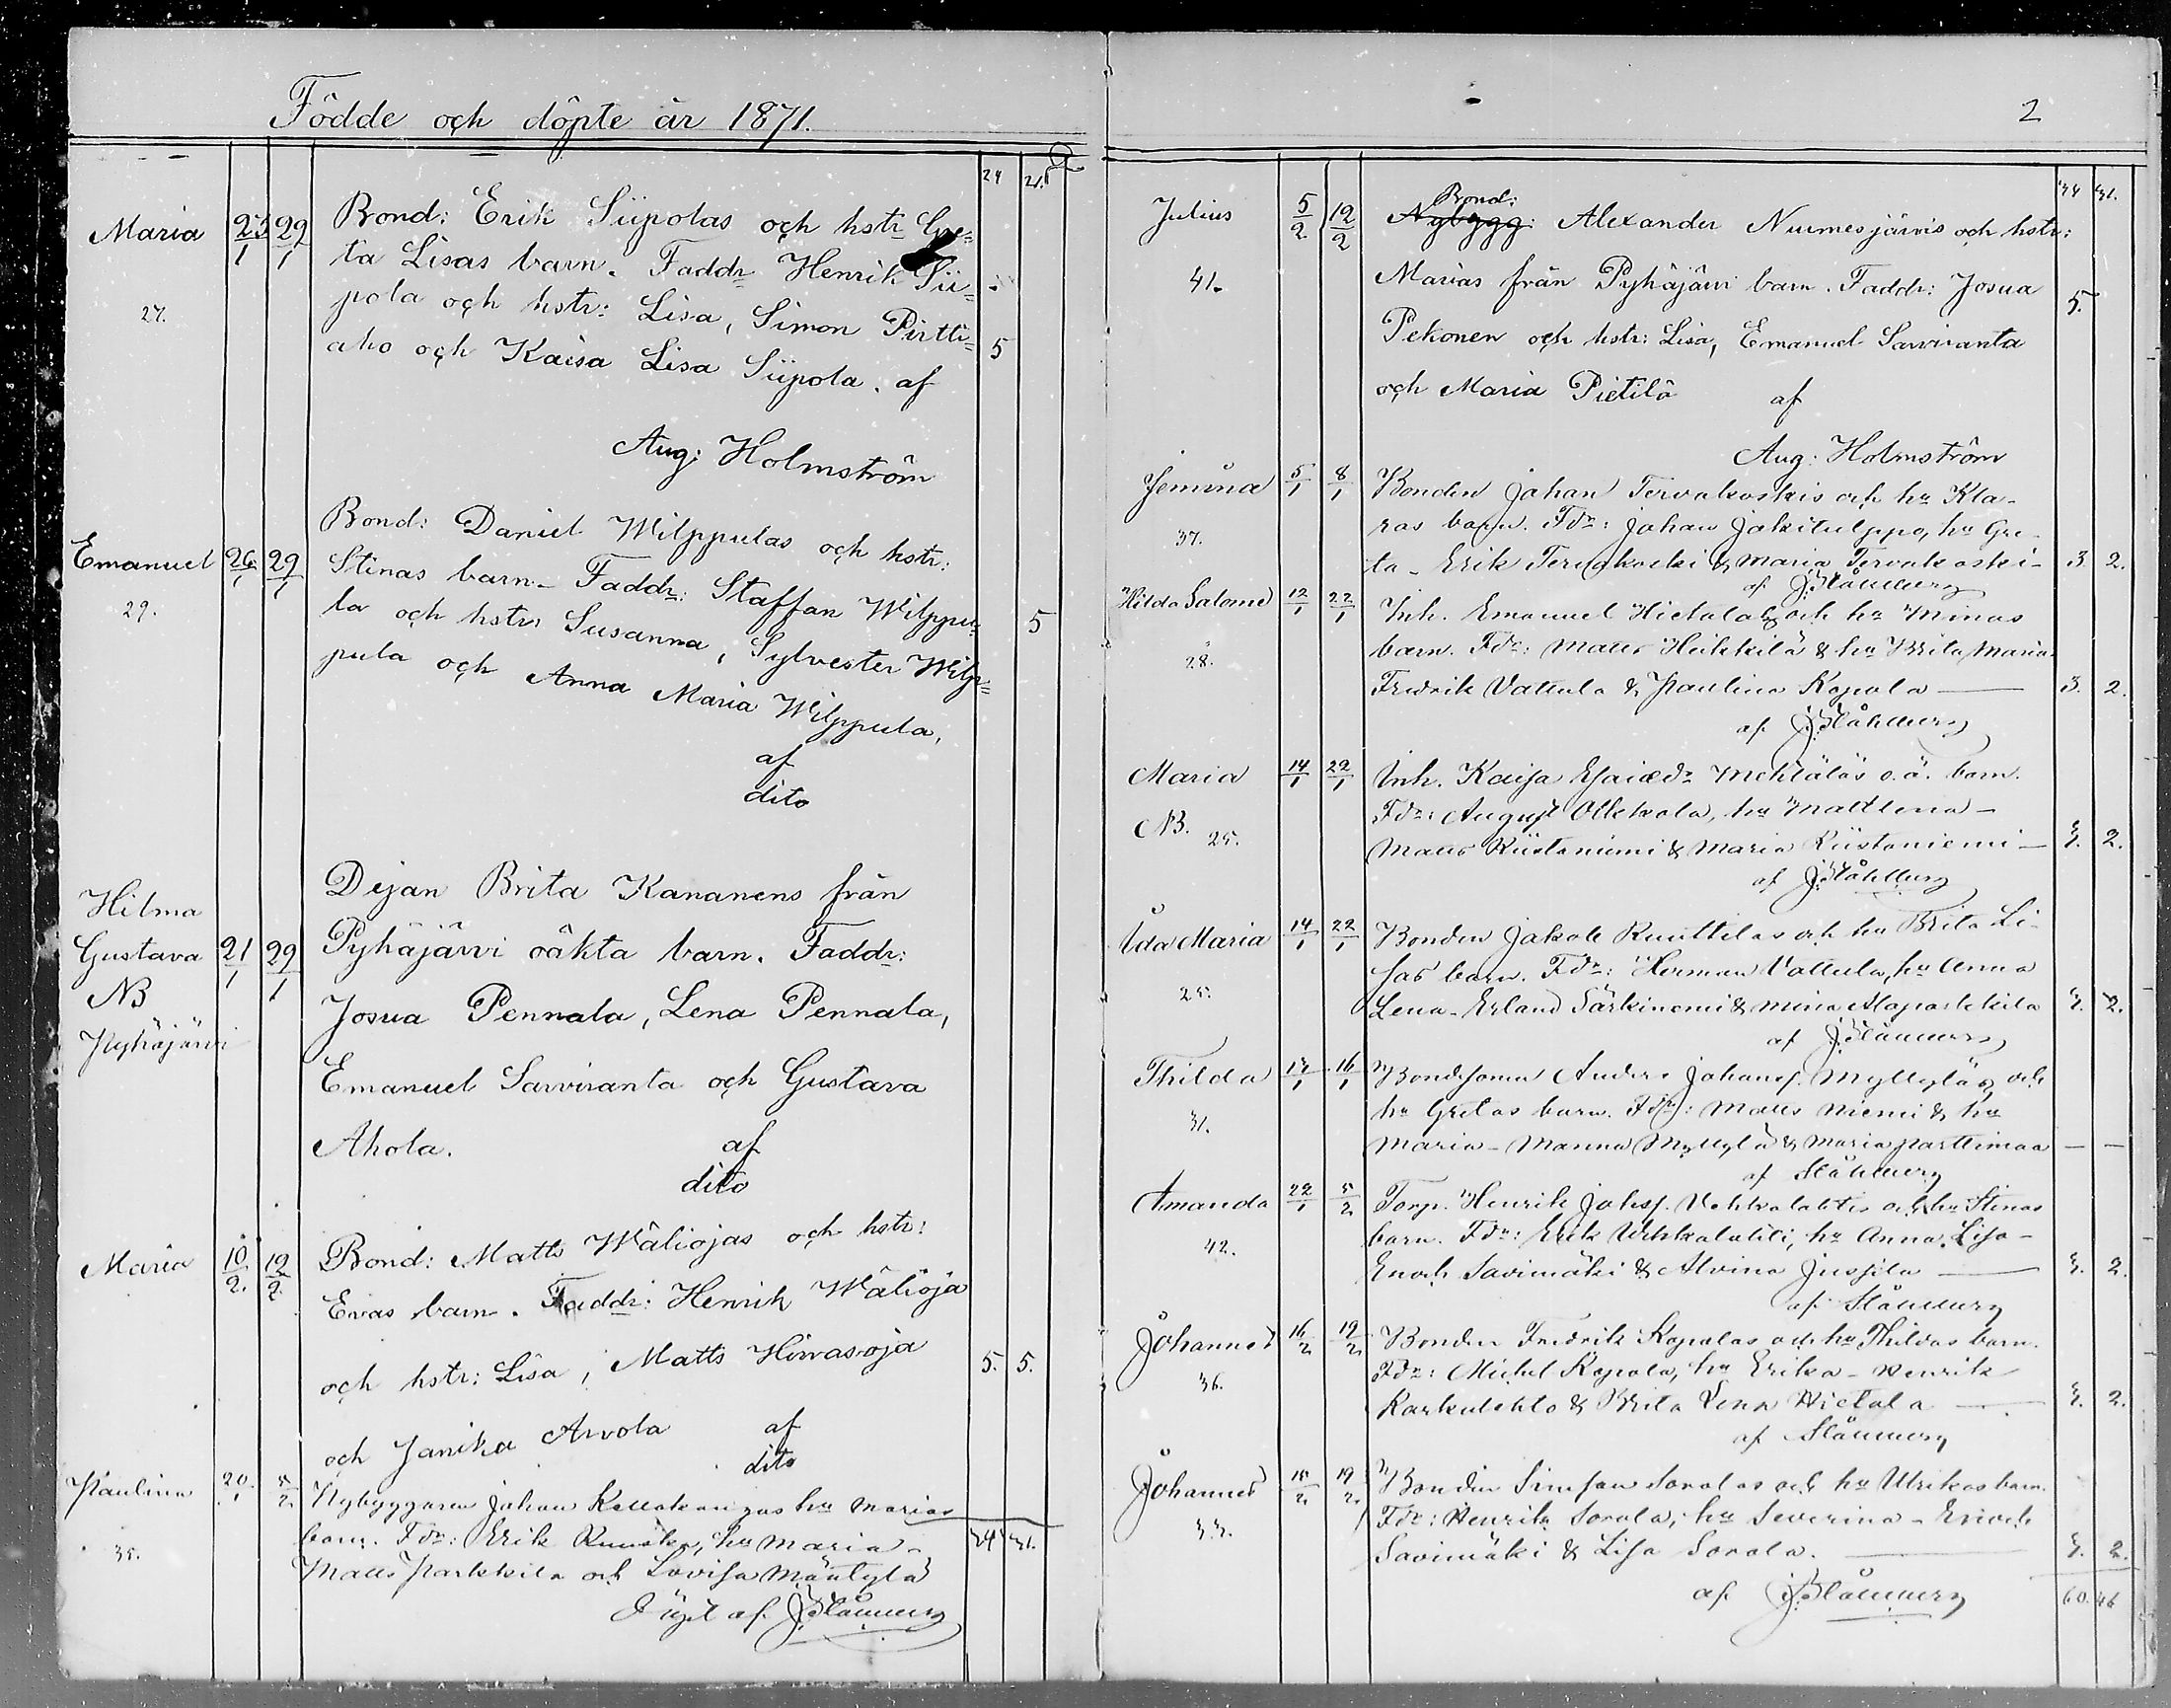 Födde och döpte år 1871.
24 21.
Maria 23/1 29/1 Bond: Erik Siipolas och hstr Gre=
ta Lisas barn. Faddr Henrik Sii=
27. pola och hstr: Lisa, Simon Pirtti=
aho och Kaisa Lisa Siipola. af 5
Aug: Holmström
Emanuel 26/1 29/1 Bond: Daniel Wilppulas och hstr:
Stinas barn. Faddr: Staffan Wilppu=
29. la och hstr: Susanna, Sylvester Wilp= 5
pula och Anna Maria Wilppula,
af
dito
Hilma Dejan Brita Kananens från
Gustava 21/1 29/1 Pyhäjärvi oäkta barn. Faddr:
NB Josua Pennala, Lena Pennala,
Pyhäjärvi
Emanuel Sarviranta och Gustava
Ahola. af
dito
Maria 10/2. 12/2. Bond: Matts Wäliojas och hstr:
Evas barn. Faddr: Henrik Wälioja
och hstr: Lisa, Matts Hirvasoja 5. 5.
och Janika Arvola af
dito
Paulina 20/1 5/2 Nybyggaren Johan hu Marias
barn. Fdr: Erik hu Maria - 34 31.
35. Matts Parkkila och Lovisa Mäntylä
af J. Ståhlberg
2
34 31.
Bond:
Julius 5/2 12/2 Nybygg: Alexander Nurmesjärvis och hstr:
41. Marias från Pyhäjärvi barn. Faddr: Josua 5.
Pekonen och hstr: Lisa, Emanuel Sarviranta
och Maria Pietilä af
Aug: Holmström
Jemina 5/1 8/1 Bonden Johan Tervakoskis och hu Kla-
37. ras barn. Fdr: Johan Jakitulppo, hu Gre-
ta - Erik Tervakoski & Maria Tervakoski - 3. 2.
af J. Ståhlberg
Hilda Salome 12/1 22/1 Inh. Emanuel Hietalas och hu Minas
28. barn. Fdr: Matts Heikkilä & hu Brita Maria -
Fredrik Vattula & Paulina Kopola — 3. 2.
af J. Ståhlberg
Maria 14/1 22/1 Inh. Kaisa Esaiædr Mehtäläs o.ä. barn.
NB. 25. Fdr: August Olkkola, hu
Matts Riistaniemi & Maria Riistaniemi — 3. 2.
af J. Ståhlberg
Ida Maria 14/1 22/1 Bonden Jakob Ruuttilas och hu Brita Li-
25. sas barn. Fdr: Herman Vattula, hu Anna
Lena - Erland Särkiniemi & Mina Alaparkkila 3. 2.
af J. Ståhlberg
Thilda 13/1 16/1 Bondesonen Anders Johans. Myllyläs och
31. hu Gretas barn. Fdr: Matts Niemi & hu
Maria - Manna Myllylä & Maria Parttimaa — —
af Ståhlberg
Amanda 22/1 5/2 Torp. Henrik Johs. Vehkalahtis och hu Stinas
42. barn. Fdr: Erik Vehkalahti, hu Anna Lisa -
Enoch Savimäki & Alvina Jussila — 3. 2.
af Ståhlberg
Johannes 16/2 19/2 Bonden Fredrik Kopolas och hu Thildas barn.
36. Fdr: Michel Kopola, hu Erika - Henrik
Karkulehto & Brita Lena Hietala — 3. 2.
af Ståhlberg
Johannes 15/2 19/2 Bonden Simson Sorolas och hu Ulrikas barn.
33. Fdr: Henrik Sorola, hu Severina - Enoch
Savimäki & Lisa Sorola. — 3. 2.
af J. Ståhlberg 60. 46